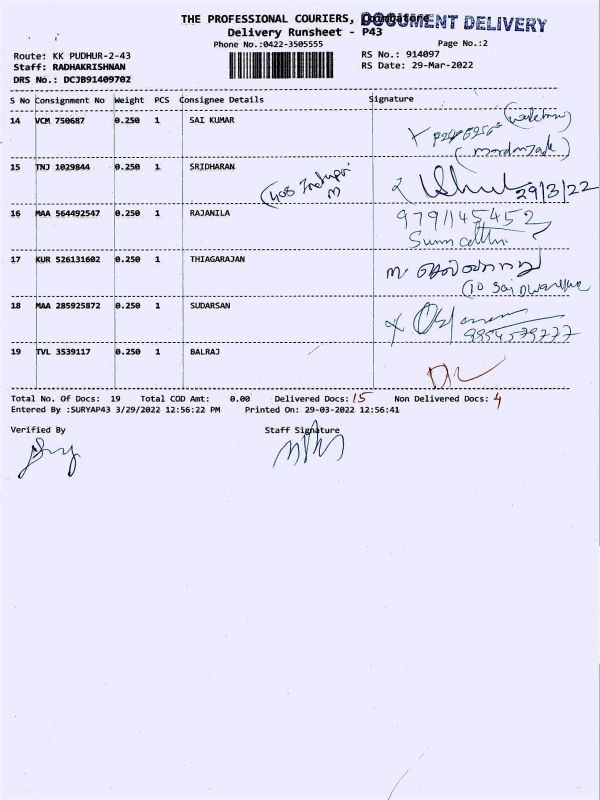 THE PROFESSIONAL COURIERS, Coimbatore
DOCUMENT DELIVERY
Delivery Runsheet - P43
Phone No.:0422-3505555
Page No.:2
Route: KK PUDHUR-2-43
RS No.: 914097
Staff: RADHAKRISHNAN
RS Date: 29-Mar-2022
DRS No.: DCJB91409702
S No Consignment No Weight PCS Consignee Details Signature
14 VCM 750687 0.250 1 SAI KUMAR
15 TNJ 1029844 0.250 1 SRIDHARAN
29/3/22
16 MAA 564492547 0.250 1 RAJANILA 9791145452
17 KUR 526131602 0.250 1 THIAGARAJAN
18 MAA 285925872 0.250 1 SUDARSAN
19 TVL 3539117 0.250 1 BALRAJ
Total No. Of Docs: 19 Total COD Amt: 0.00 Delivered Docs: 15 Non Delivered Docs: 4
Entered By :SURYAP43 3/29/2022 12:56:22 PM Printed On: 29-03-2022 12:56:41
Verified By Staff Signature